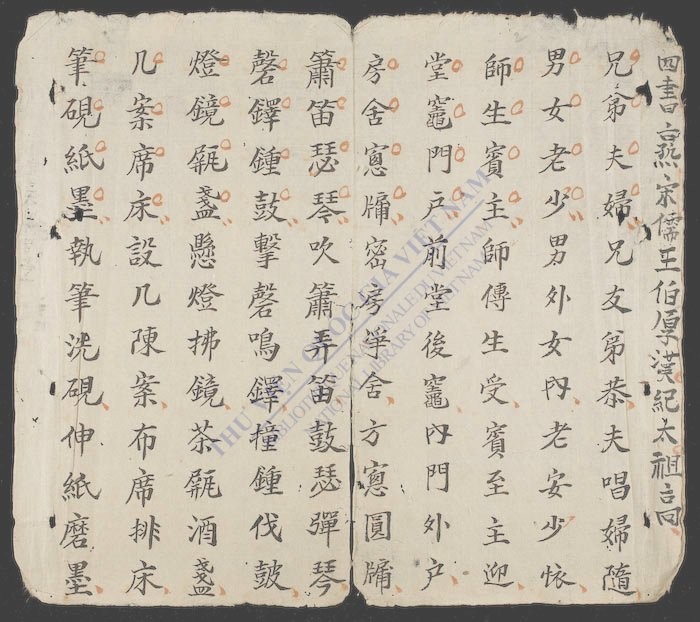 四書宋儒王伯厚漢紀太祖
兄弟夫婦兄友弟恭夫唱婦隨
男女老少男外女内老安少懷
師生賓主師傳生受賓至主迎
堂竈門戶前堂後竈内門外戶
房舍窓牖密房舍方窓圓牖
簫笛瑟琴吹簫弄笛鼓瑟彈琴
磬鐸鍾鼓擊磬鳴鐸撞鍾伐鼓
燈鏡瓶盞懸燈拂鏡茶瓶酒盞
几案席床設几陳案布席排床
筆硯紙墨執筆洗硯伸紙磨墨
THƯ VIỆN QUỐC GIA VIỆT NAM
BIBLIOTHÈQUE NATIONALE DU VIETNAM
NATIONAL LIBRARY OF VIETNAM